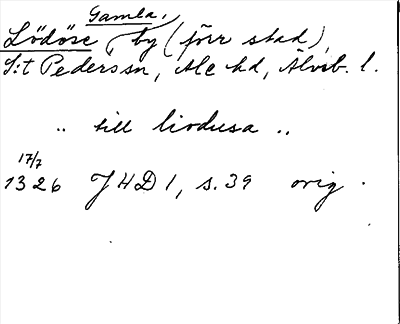 Gamla,
Lödöse, by (förr stad),
S:t Pederssn, Ale hd, Älvsb. l.
.. till liodusa ..
17/7
1326 JHD 1, s. 39 orig.